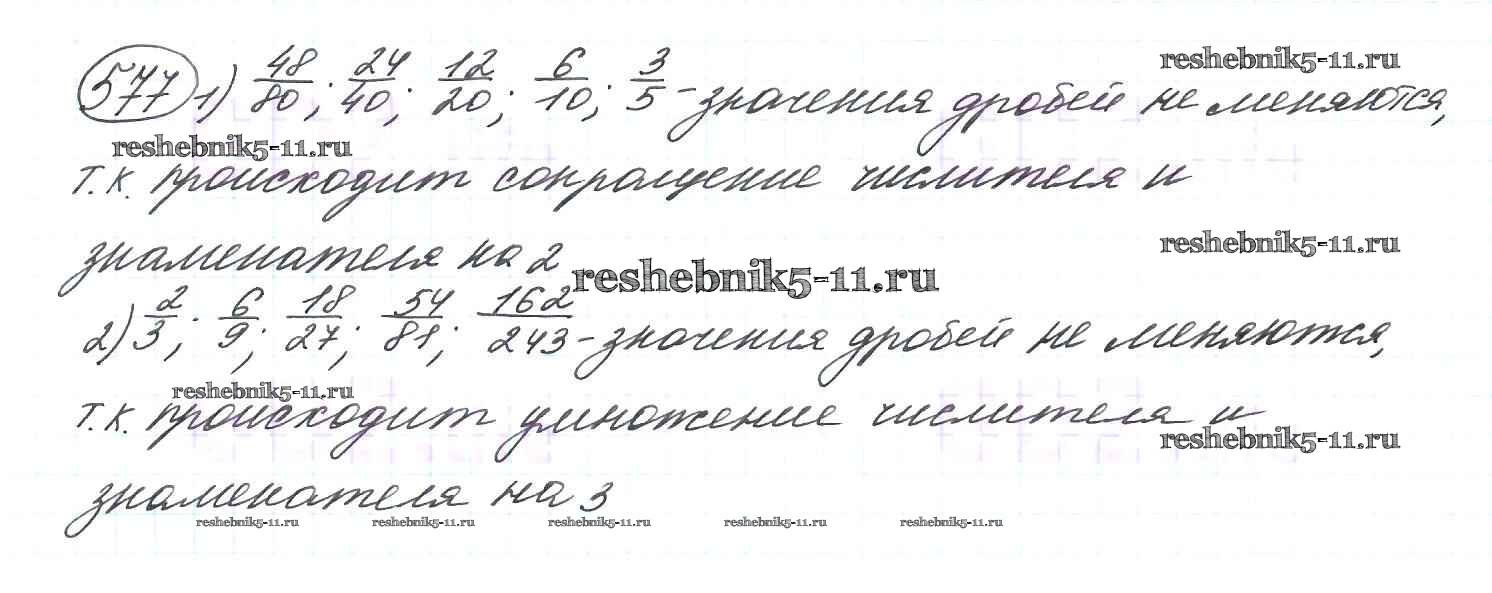 577 1) 48/80; 24/40; 12/20; 6/10; 3/5 - значения дробей не меняются,
reshebnik5-11.ru
reshebnik5-11.ru
т.к. происходит сокращение числителя и
знаменателя на 2
reshebnik5-11.ru
reshebnik5-11.ru
2) 2/3; 6/9; 18/27; 54/81; 162/243 - значения дробей не меняются,
reshebnik5-11.ru
т.к. происходит умножение числителя и
reshebnik5-11.ru
знаменателя на 3
reshebnik5-11.ru reshebnik5-11.ru reshebnik5-11.ru reshebnik5-11.ru reshebnik5-11.ru